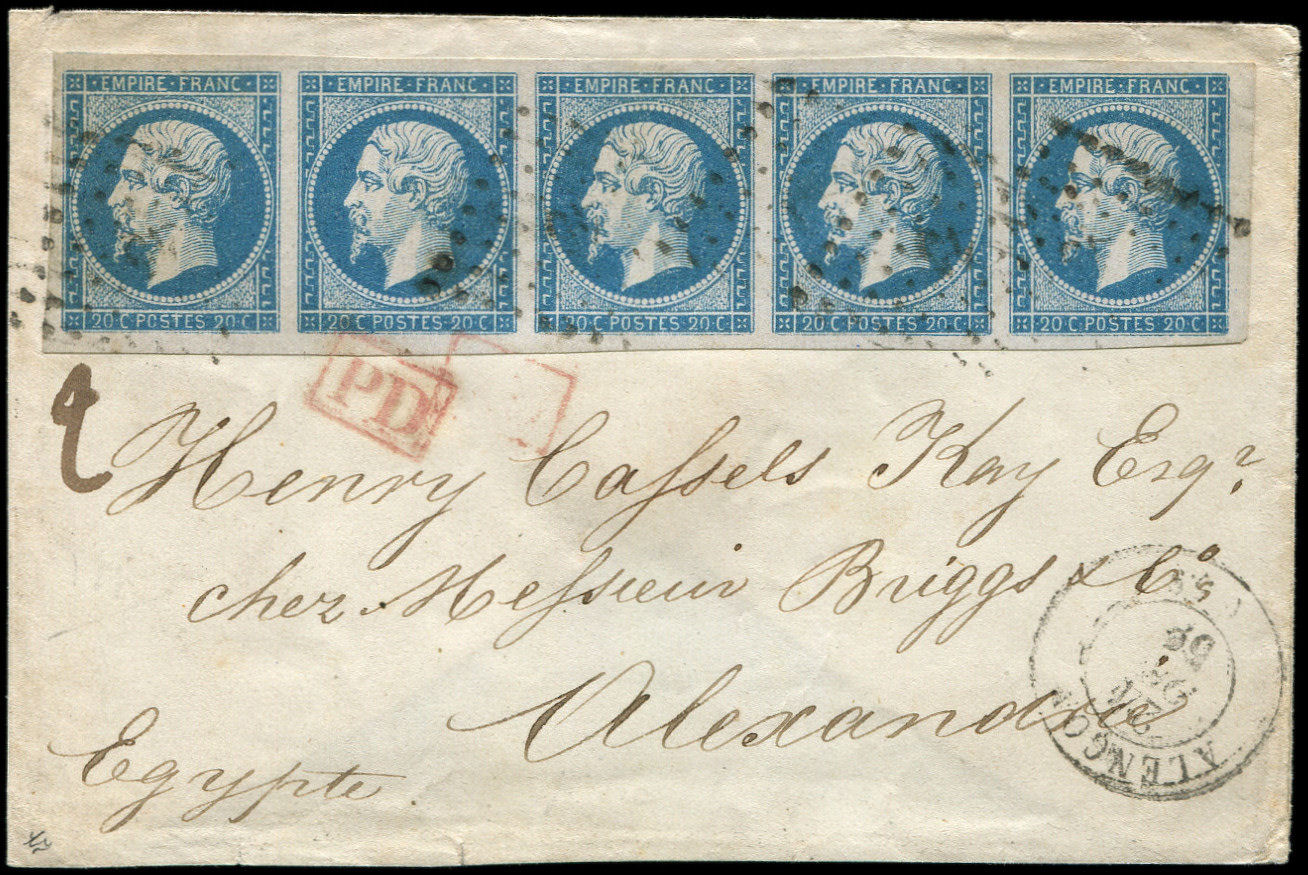 EMPIRE·FRANC· EMPIRE·FRANC· EMPIRE·FRANC· EMPIRE·FRANC· EMPIRE·FRANC·
20·C·POSTES·20·C· 20·C·POSTES·20·C· 20·C·POSTES·20·C· 20·C·POSTES·20·C· 20·C·POSTES·20·C·
PD
Henry Cassels Kay Esqr
chez Messieur Briggs & Co
Alexandrie
Egypte.
ALENCON